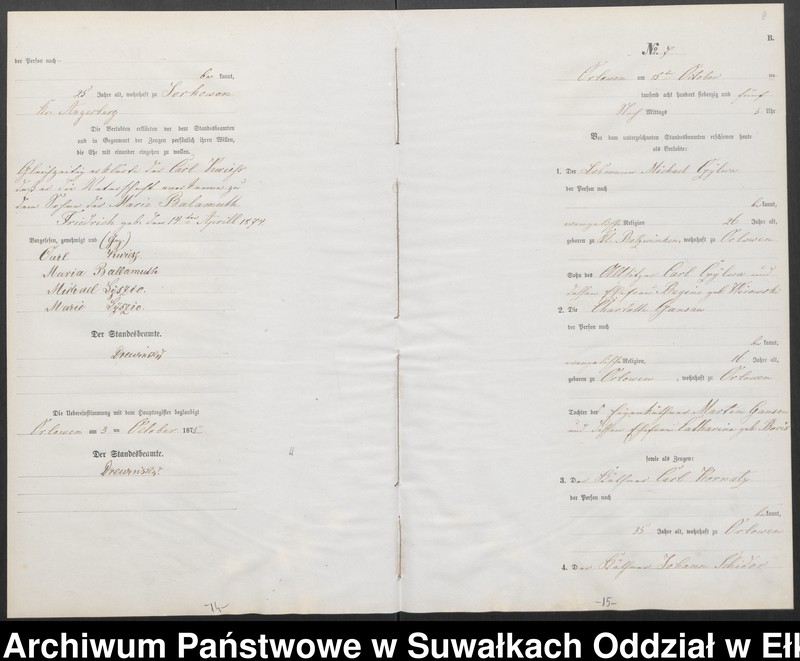 der Person nach
be kannt,
25 Jahre alt, wohnhaft zu
Kr. Angerburg
Die Verlobten erklärten vor dem Standesbeamten
und in Gegenwart der Zeugen persönlich ihren Willen,
die Ehe mit einander eingehen zu wollen.
Gleichzeitig erklärte der Carl
daß er die Vaterschaft anerkenne zu
dem Sohne der Marie Balamuth
Friedrich geb. den 14ten Aprill 1874
Vorgelesen, genehmigt und
Carl
Maria Ballamuth
Michael Lyszio.
Marie Lyszio.
Der Standesbeamte.
Drewinski
Die Uebereinstimmung mit dem Hauptregister beglaubigt
Orlowen am 3 ten October 1875
Der Standesbeamte.
Drewinski
14
B.
№ 7
Orlowen am 15ten October
tausend acht hundert siebenzig und fünf
Nach Mittags Uhr
Vor dem unterzeichneten Standesbeamten erschienen heute
als Verlobte:
1. Der Losmann Michael
der Person nach
be kannt,
evangelischer Religion, 26 Jahre alt,
geboren zu wohnhaft zu Orlowen
Sohn des Altsitzer Carl und
dessen Ehefrau Regine geb.
2. Die Charlotte Gansau
der Person nach
be kannt,
evangelischer Religion, Jahre alt,
geboren zu Orlowen, wohnhaft zu Orlowen
Tochter des Eigenkäthner Martin Gansau
und dessen Ehefrau Catharine geb.
sowie als Zeugen:
3. Der Käthner Carl
der Person nach
bekannt,
35 Jahre alt, wohnhaft zu Orlowen
4. Der Käthner Johann
-15-
Archiwum Państwowe w Suwałkach Oddział w Ełk